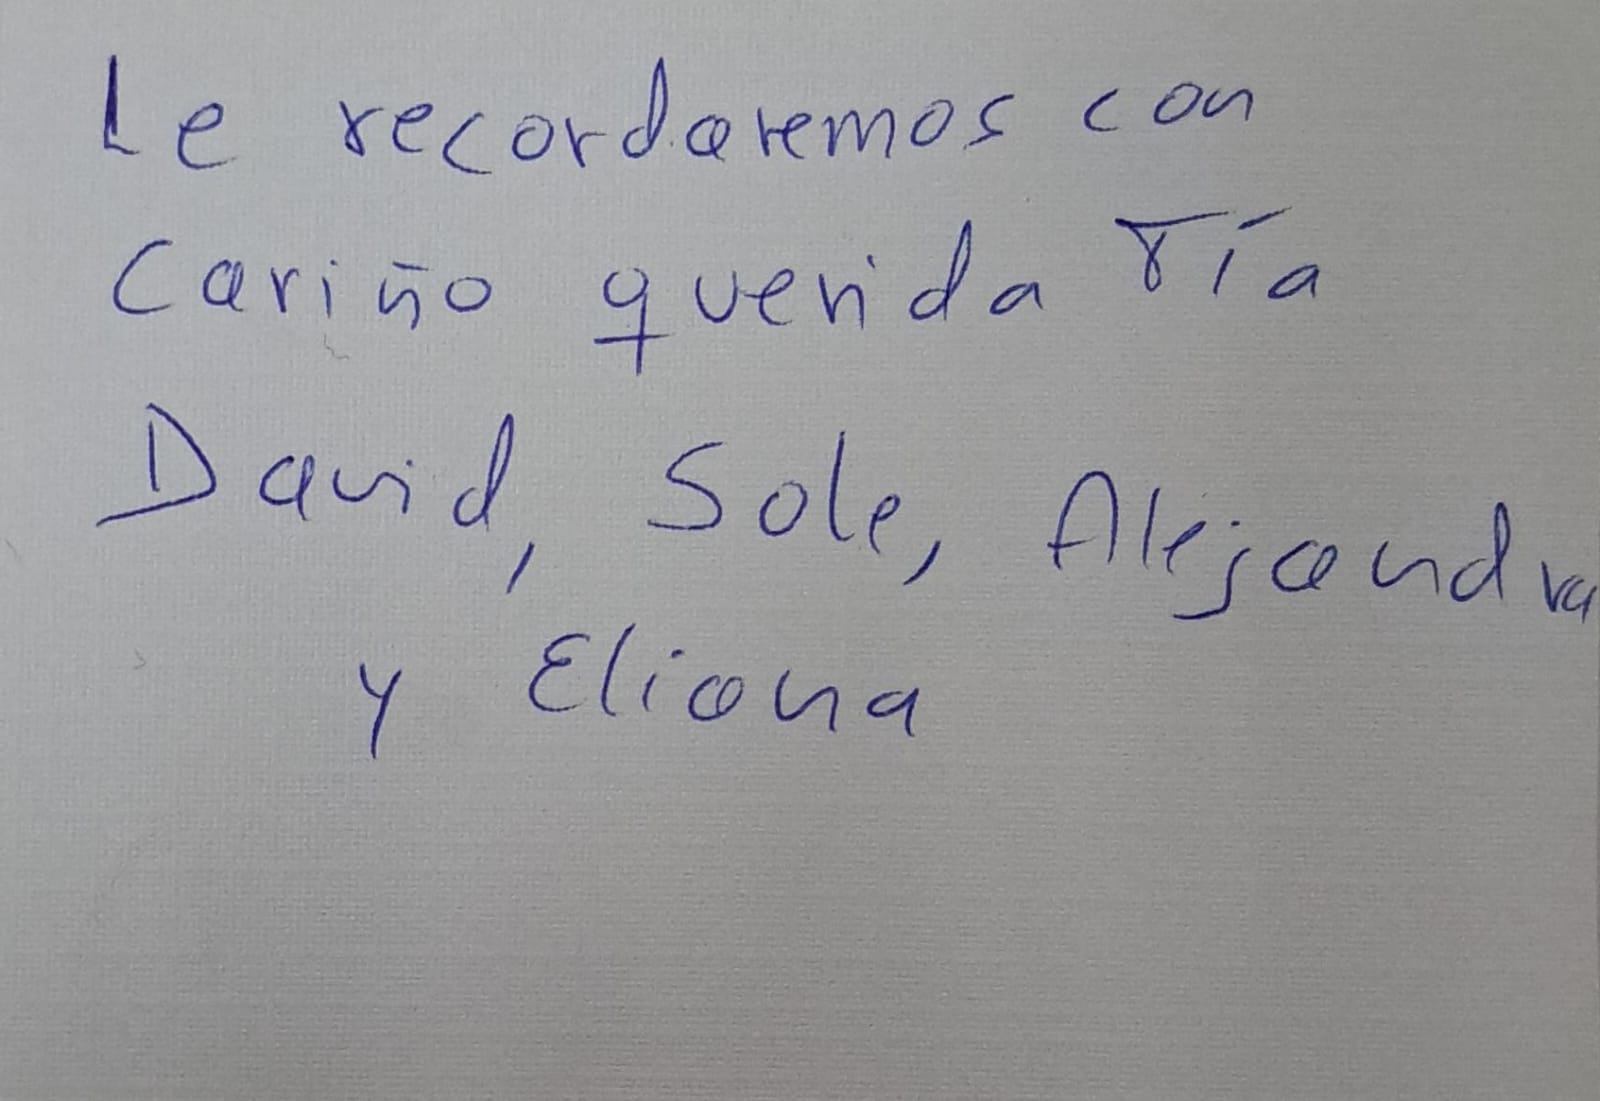 Le recordaremos con
Cariño querida Tía
David, Sole, Alejandra
y Eliana